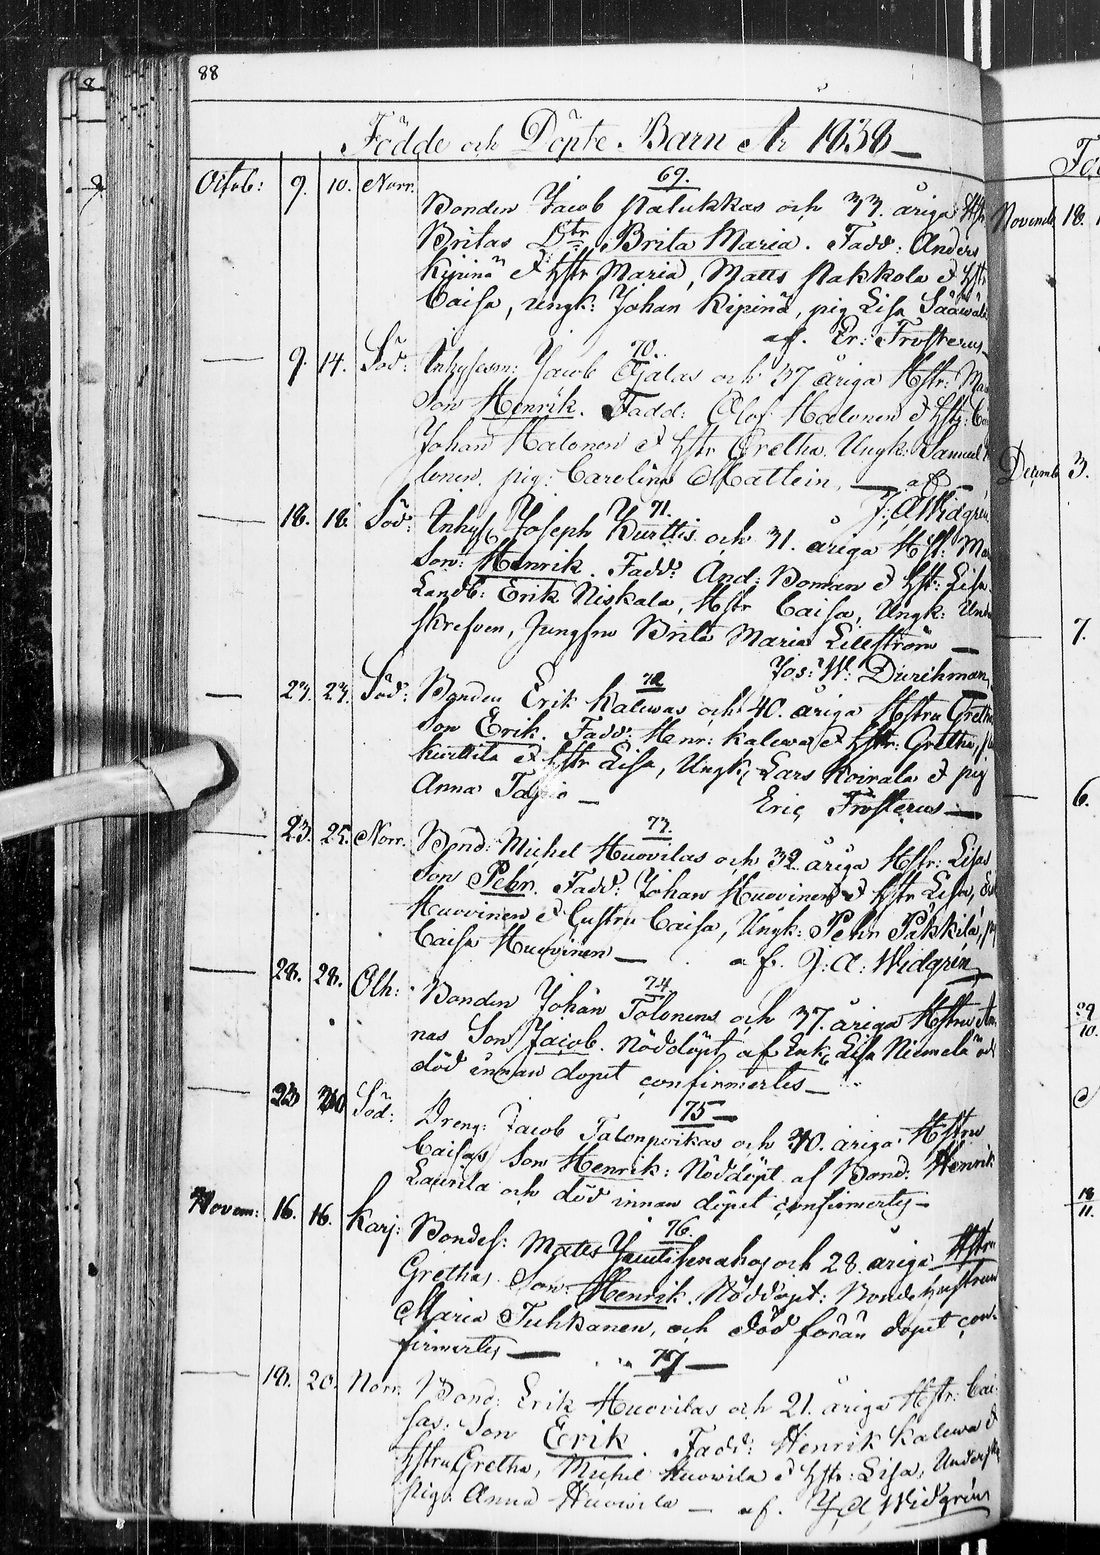 88
Födde och Döpte Barn År 1838
69.
Octob: 9. 10. Norr. Bonden Jacob Palukkas och 33. åriga Hstr
Britas Dtr Brita Maria. Fadd: Anders
Kipinä & hstr Maria, Matts Pakkola & hstr
Caisa, ungk: Johan Kipinä, pig Lisa
af. Er: Frosterus
70.
9. 14. Söd: Inhysesm: Jacob och 37 åriga Hstr:
Son Henrik. Fadd: Olof Halonen & hstr:
Johan Halonen & hstr Gretha. Ungk: Samuel
lonen, pig: Carolina Mattlin, af
J: A Widgrén
71.
18. 18. Söd: Inhys: Joseph Kurttis och 31. åriga Hst:
Son: Henrik. Fadd: And: Boman & hstr: Lisa
Landb: Erik Niskala, Hstr Caisa, Ungk: Unde
skrefven, Jungfru Brita Maria Lillström
Jos: W: Durchman
72
23. 23. Söd: Bonden Erik Kalewas och 40. åriga Hstru Gretha
son Erik. Fadd: Henr: Kalewa & hstr: Gretha,
Kurttila & hstr Lisa, Ungk: Lars Koirala & pig
Anna
Eric Frosterus
73.
23. 25. Norr. Bond: Michel Huovilas och 32 åriga Hstr: Lisas
Son Pehr. Fadd: Johan Huovinen & hstr Lisa,
Huovinen & hustru Caisa, Ungk: Pehr Päkkilä,
Caisa Huovinen af. J: A: Widgrén
74.
28. 28. Olh: Bonden Johan Tolonens och 37. åriga Hstru An
nas Son Jacob. Nöddöpt af Enk: Lisa Niemelä och
död innan dopet confirmertes
75
23 Söd: Dreng: Jacob Talonpoikas och 30. åriga Hstru
Caisas Son Henrik: Nöddöpt af Bond. Henrik
Laurila och död innan dopet confirmertes
76.
Novem: 16. 16. Karj: Bondes: Matts och 28. åriga Hstru
Grethas Son: Henrik. Nöddöpt: Bondehustrun
Maria Tuhkanen, och död förän dopet con-
firmertes
77
18. 20. Norr. Bond: Erik Huovilas och 21. åriga Hstr: Cai
sas: Son Erik. Fadd: Henrik Kalewa &
hstru Gretha, Michel Huovila & hstr: Lisa,
piga Anna Huovila af. J: A, Widgrén
Novemb 18.
Decemb 3.
7.
6.
29
10.
18
11.